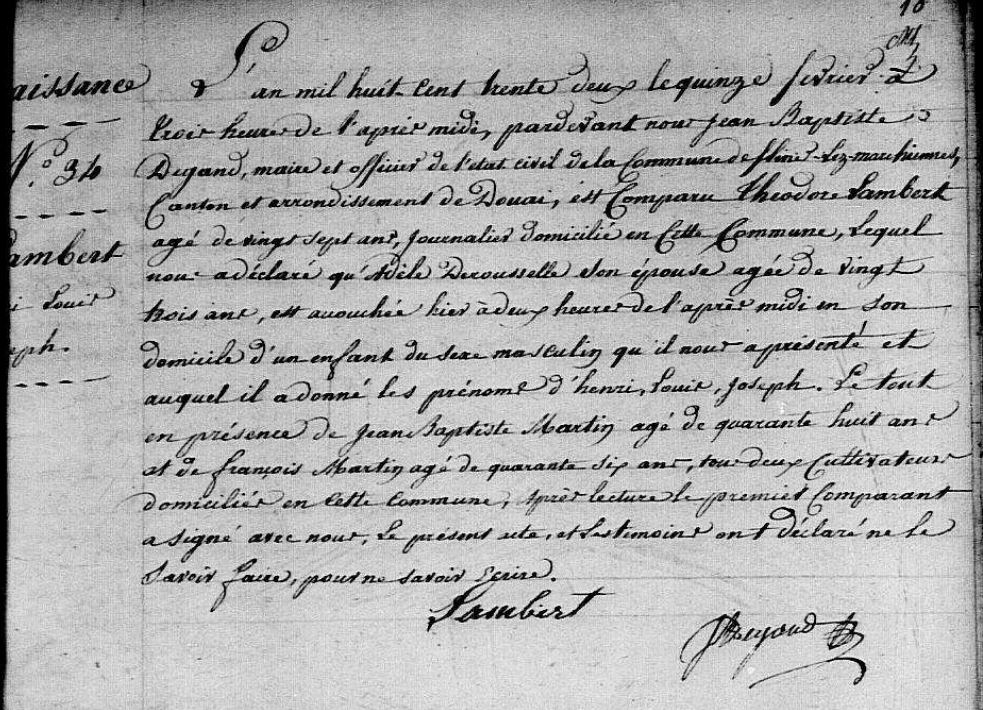 10
aissance
N.° 34
ambert
i Louis
eph.
L'an mil huit-cent trente deux le quinze fevrier à
trois heures de l'après midi, pardevant nous Jean Baptiste
Degand, maire et officier de l'état civil de la Commune de flines-Lez-marchiennes,
Canton et arrondissement de Douai, est Comparu Theodore Lambert
agé de vingt sept ans, Journalier domicilié en Cette Commune, Lequel
nous a déclaré qu'Adèle Derousselle Son épouse agée de vingt
trois ans, est accouchée hier à deux heures de l'après midi en son
domicile d'un enfant du sexe masculin qu'il nous a présenté et
auquel il a donné les prénoms d'henri, Louis, Joseph. Le tout
en présence de Jean Baptiste Martin agé de quarante huit ans
et de françois Martin agé de quarante six ans, tous deux Cultivateurs
domiciliés en Cette Commune, Après lecture le premier Comparant
a signé avec nous, Le présent acte, et Les temoins ont déclaré ne le
Savoir faire, pour ne savoir Ecrire.
Lambert
Degand